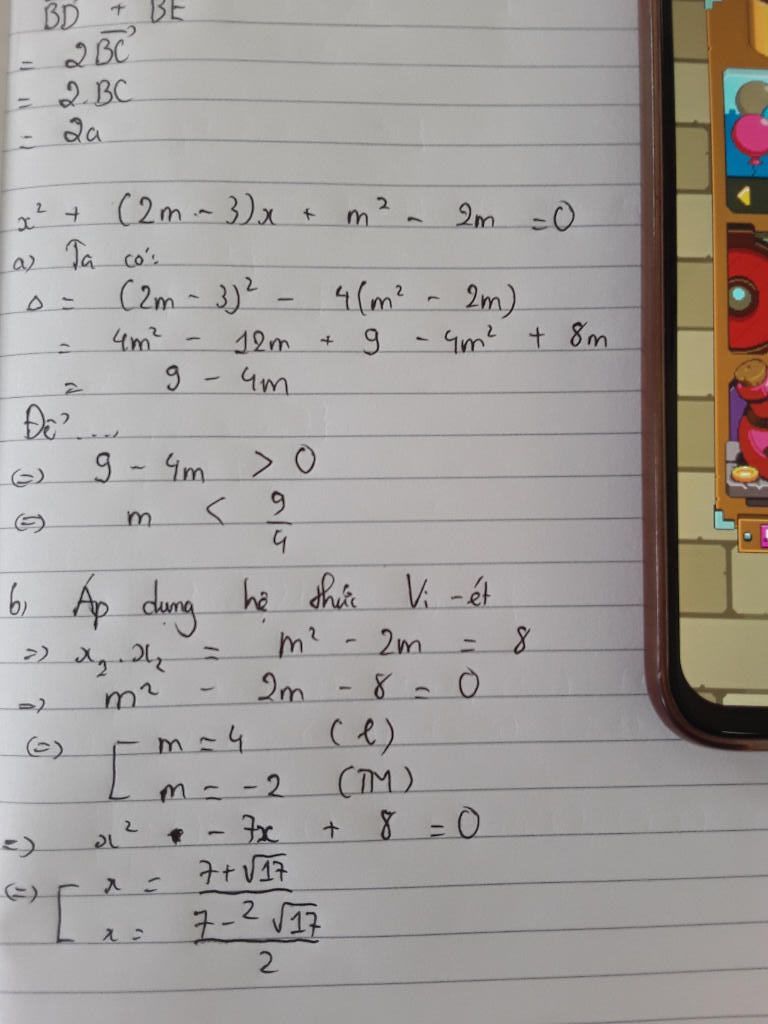 BD + BE
= 2BC
= 2.BC
= 2a
x² + (2m - 3)x + m² - 2m = 0
a) Ta có:
Δ = (2m - 3)² - 4(m² - 2m)
= 4m² - 12m + 9 - 4m² + 8m
= 9 - 4m
Để ....
(=) 9 - 4m > 0
(=) m < 9/4
b, Áp dụng hệ thức Vi-ét
=) x₂.x₂ = m² - 2m = 8
=) m² - 2m - 8 = 0
(=) [ m = 4 (l)
m = -2 (TM)
=) x² - 7x + 8 = 0
(=) [ x = (7+√17)/2
x = (7-√17)/2